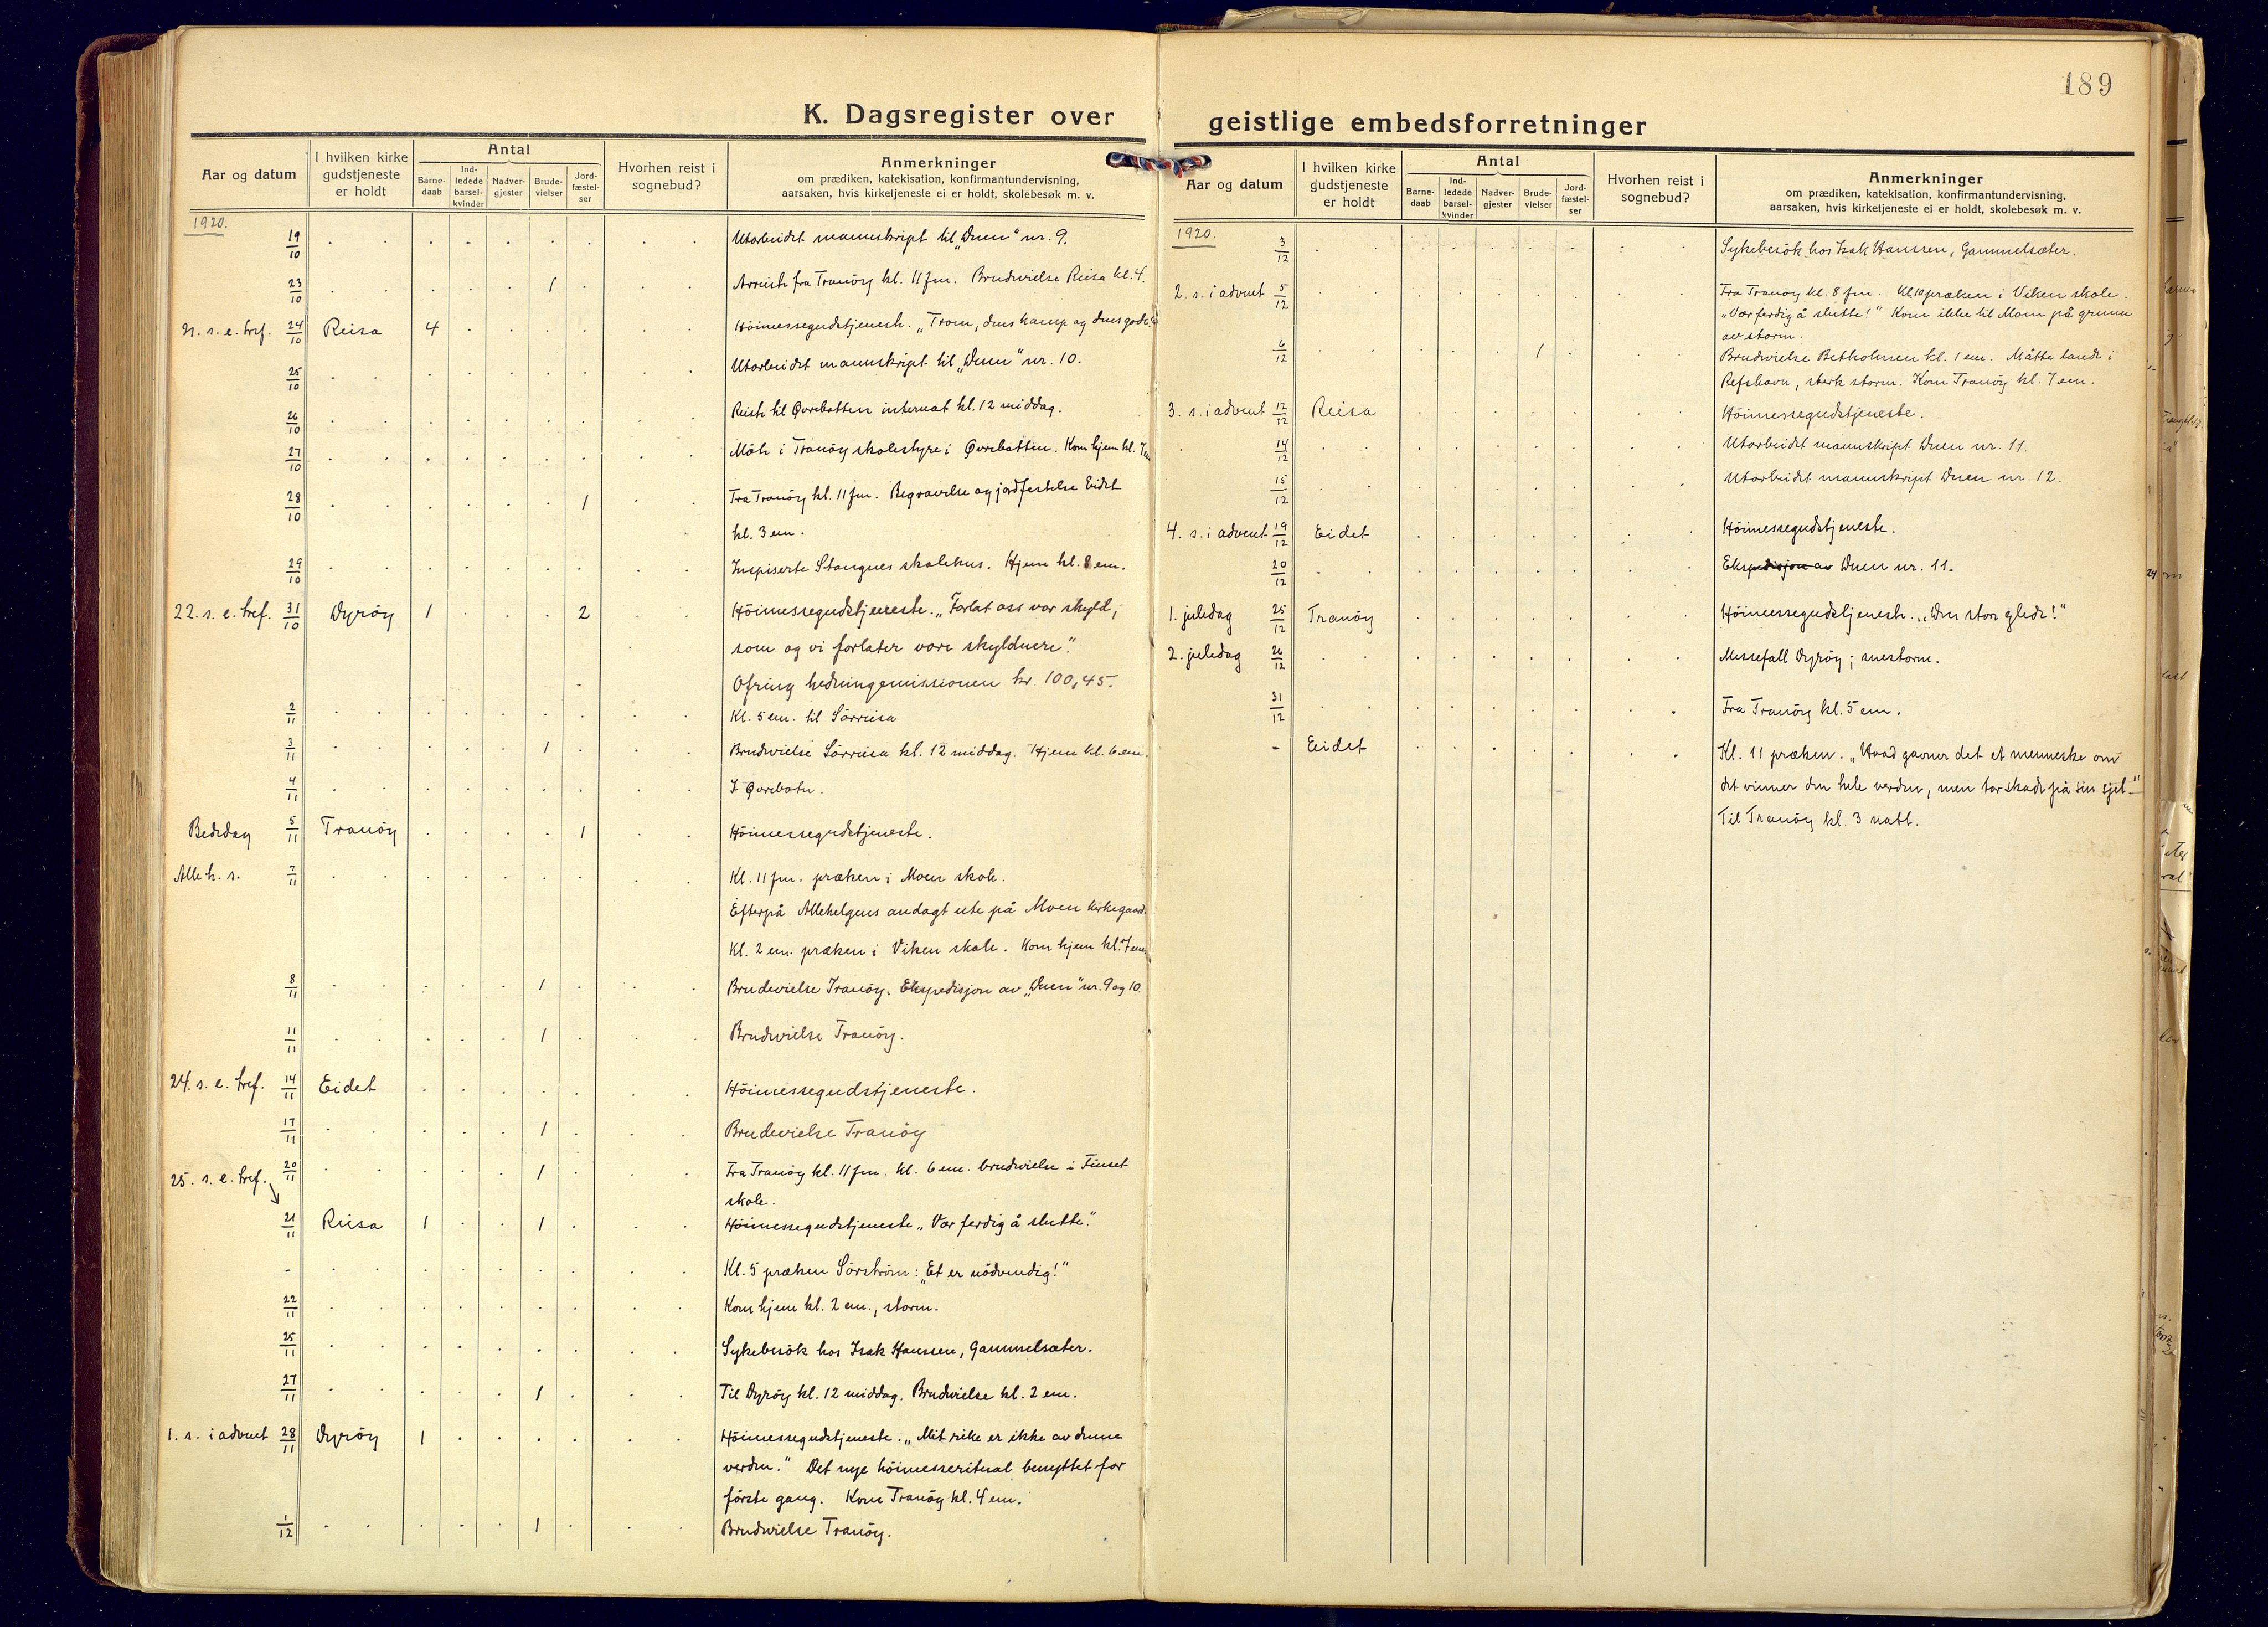 189
K. Dagsregister over
Aar og datum
I hvilken kirke
gudstjeneste
er holdt
Antal
Barne-
daab
Ind-
ledede
barsel-
kvinder
Nadver-
gjester
Brude-
vielser
Jord-
fæstel-
ser
Hvorhen reist i
sognebud?
Anmerkninger
om prædiken, katekisation, konfirmantundervisning,
aarsaken, hvis kirketjeneste ei er holdt, skolebesøk m. v.
1920.
19/10 Utarbeidet manuskript til „Duen" nr. 9.
23/10 1 Avreiste fra Tranöy kl. 11 fm. Brudevielse Reisa kl. 4.
21. s. e. tref. 24/10 Reisa 4 Höimessegudstjeneste. „Troen, dens kamp og dens
25/10 Utarbeidet manuskript til „Duen" nr. 10.
26/10 Reiste til Øvrebotten internat kl. 12 middag.
27/10 Möte i Tranöy skolestyre i Øvrebotten. Kom hjem kl. 7 em
28/10 1 Fra Tranöy kl. 11 fm. Begravelse og jordfestelse Eidet
kl. 3 em.
29/10 Inspiserte Stangnes skolehus. Hjem kl. 8 em.
22. s. e. tref. 31/10 Dyröy 1 2 Höimessegudstjeneste. „Forlat oss vor skyld,
som og vi forlater vore skyldnere."
Ofring hedningemissionen kr. 100,45.
2/11 Kl. 5 em. til Sörreisa
3/11 1 Brudevielse Sörreisa kl. 12 middag. Hjem kl. 6 em.
4/11 I Øvrebotn.
Bededag 5/11 Tranöy 1 Höimessegudstjeneste.
Alle h. s. 7/11 Kl. 11 fm. præken i Moen skole.
Efterpå Allehelgens andagt ute på Moen kirkegaard.
Kl. 2 em. præken i Viken skole. Kom hjem kl. 7 em
8/11 1 Brudevielse Tranöy. Ekspedisjon av „Duen" nr. 9 og 10.
11/11 1 Brudevielse Tranöy.
24. s. e. tref. 14/11 Eidet Höimessegudstjeneste.
17/11 1 Brudevielse Tranöy
20/11 1 Fra Tranöy kl. 11 fm. kl. 6 em. brudevielse i Finset
skole.
25. s. e. tref.
21/11 Reisa 1 1 Höimessegudstjeneste „Vær ferdig å slutte."
- Kl. 5 præken Sörström: „Et er nödvendig!"
22/11 Kom hjem kl. 2 em., storm.
25/11 Sykebesök hos Isak Hanssen, Gammelsæter.
27/11 1 Til Dyröy kl. 12 middag. Brudevielse kl. 2 em.
1. s. i advent 28/11 Dyröy 1 Höimessegudstjeneste. „Mit rike er ikke av denne
verden." Det nye höimesseritual benyttet for
förste gang. Kom Tranöy kl. 4 em.
1/12 1 Brudevielse Tranöy.
geistlige embedsforretninger
Aar og datum
I hvilken kirke
gudstjeneste
er holdt
Antal
Barne-
daab
Ind-
ledede
barsel-
kvinder
Nadver-
gjester
Brude-
vielser
Jord-
fæstel-
ser
Hvorhen reist i
sognebud?
Anmerkninger
om prædiken, katekisation, konfirmantundervisning,
aarsaken, hvis kirketjeneste ei er holdt, skolebesøk m. v.
1920.
3/12 Sykebesök hos Isak Hanssen, Gammelsæter.
2. s. i advent 5/12 Fra Tranöy kl. 8 fm. Kl 10 præken i Viken skole.
„Vær ferdig å slutte!" Kom ikke til Moen på grunn
av storm.
6/12 1 Brudevielse Betholmen kl. 1 em. Måtte lande i
Refshavn, sterk storm. Kom Tranöy kl. 7 em.
3. s. i advent 12/12 Reisa Höimessegudstjeneste.
14/12 Utarbeidet manuskript Duen nr. 11.
15/12 Utarbeidet manuskript Duen nr. 12.
4. s. i advent 19/12 Eidet Höimessegudstjeneste.
20/12 Ekspedisjon av Duen nr. 11.
1. juledag 25/12 Tranöy Höimessegudstjeneste. „Den store glede!"
2. juledag 26/12 Messefall Dyröy; snestorm.
31/12 Fra Tranöy kl. 5 em.
- Eidet Kl. 11 præken. „Hvad gavner det et menneske om
det vinner den hele verden, men tar skade på sin sjel-"
Til Tranöy kl. 3 natt.